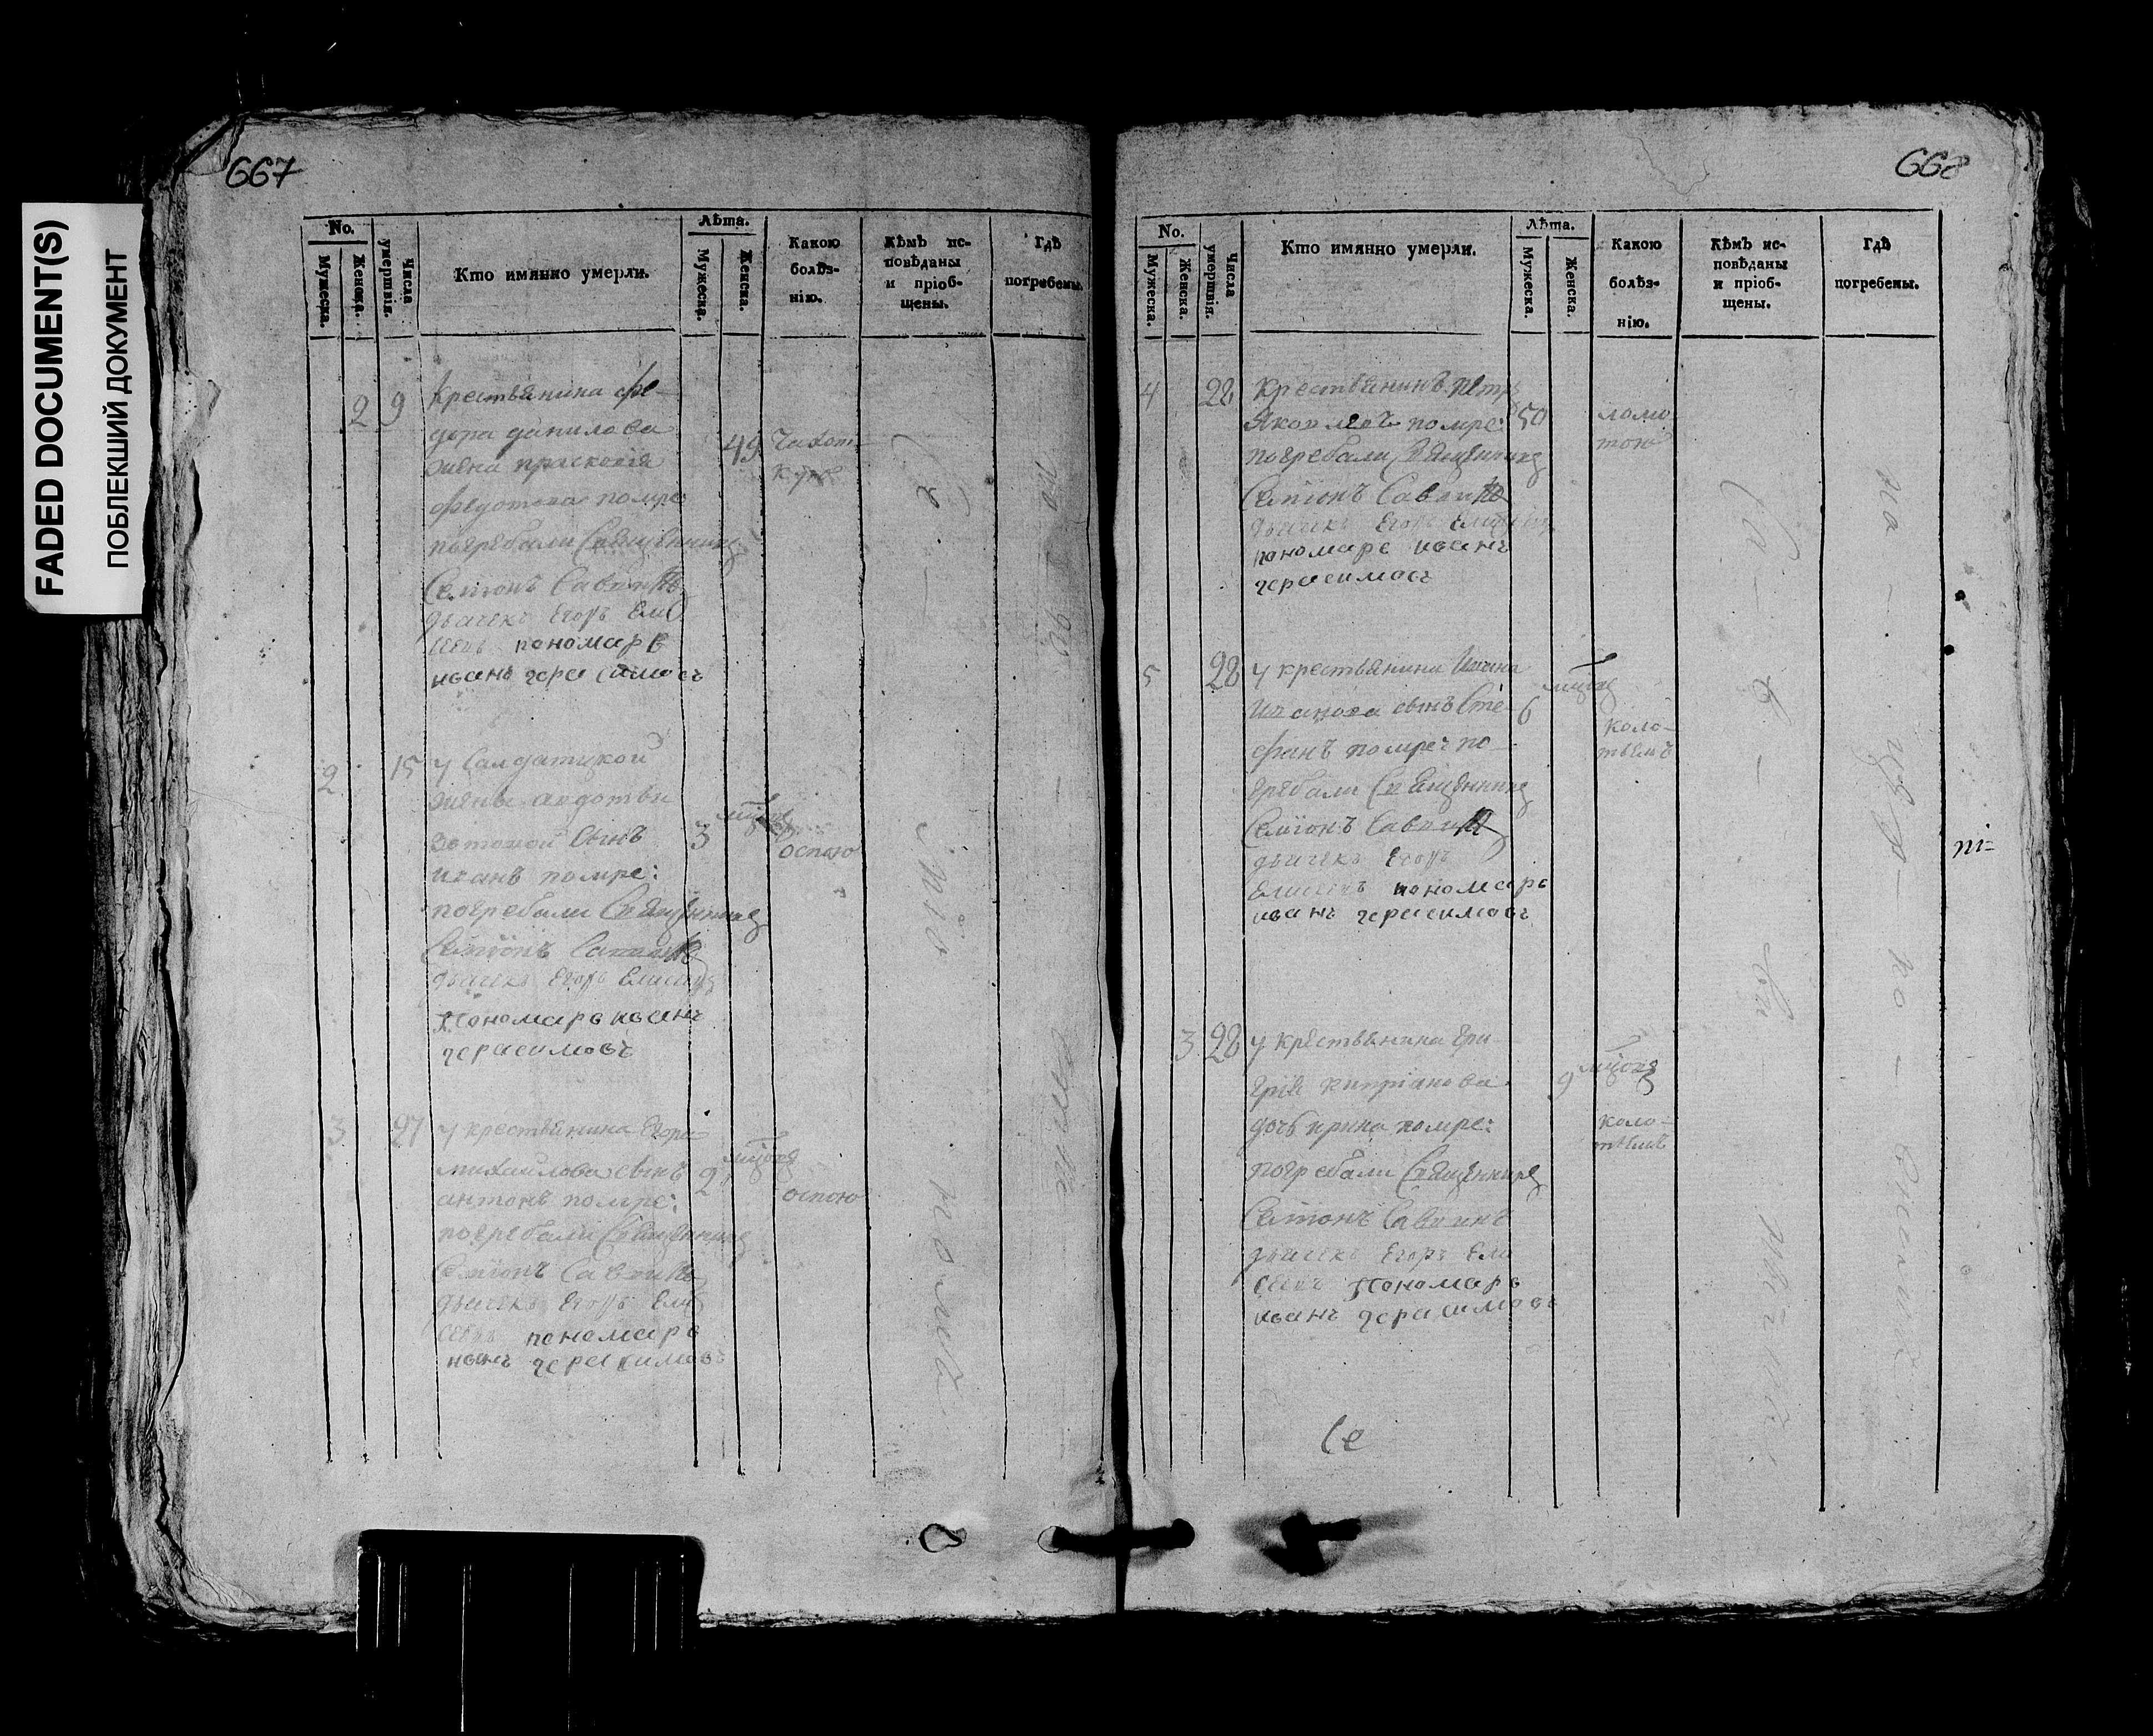 FADED DOCUMENT(S)
ПОБЛЕКШИЙ ДОКУМЕНТ
667
No.
Мужеска.
Женска.
Числа умертвія.
Кто имянно умерли.
Лѣта.
Мужеска.
Женска.
Какою болѣз-
нію.
Кѣмъ ис-
повѣданы
и пріоб-
щены.
Гдѣ
погребены.
2 9 крестьянина фе-
дора данилова
жена прасковія 49 Чахот-
кую
федотова помре
погребали Священник
Семіонъ Саввинъ
дьячекъ Егоръ Ели
сеевъ пономарь
иванъ герасимовъ
2 15 у Салдатцкой
жены авдотьи
зотовой сынъ 3 оспою
иванъ помре:
погребали Священник
Семіонъ Саввинъ
дьячекъ Егоръ Елисеев
Пономарь иванъ
герасимовъ
3 27 у крестьянина Егора
михаилова сынъ 2
антонъ помре: оспою
погребали Священник
Семіонъ Саввинъ
дьячекъ Егоръ Ели
сеевъ пономарь
иванъ герасимовъ
668
No.
Мужеска.
Женска.
Числа умертвія.
Кто имянно умерли.
Лѣта.
Мужеска.
Женска.
Какою
болѣз-
нію.
Кѣмъ ис-
повѣданы
и пріоб-
щены.
Гдѣ
погребены.
4 28 крестьянинъ петръ
Яковлевъ помре: 50 ломо
тою
погребали Священник
Семіонъ Саввинъ
дьячекъ Егоръ Елисеевъ
пономарь иванъ
герасимовъ
5 28 у крестьянина Ивана
Иванова сынъ Сте- 6
коло-
тьемъ
фанъ помре: по-
гребали Священник
Семіонъ Саввинъ
дьячекъ Егоръ
Елисеевъ пономарь
иванъ герасимовъ
3 28 у крестьянина Гри-
горія кипріанова 9
дочь ирина помре: коло-
тьемъ
погребали Священник
Семіонъ Саввинъ
дьячекъ Егоръ Ели
сеевъ Пономарь
иванъ герасимовъ
Се